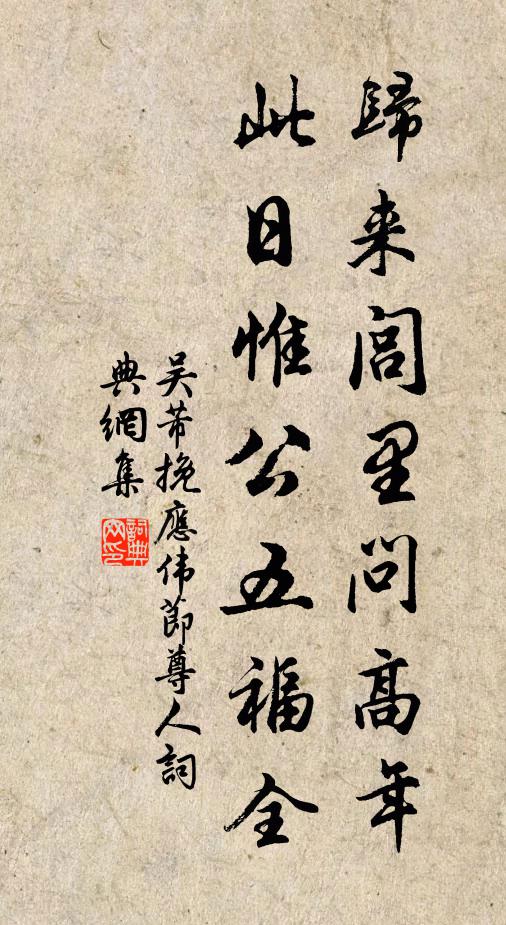 歸来閭里問高年
此日惟公五福全
吴芾挽應伟節尊人詞
典網集
詞典網印